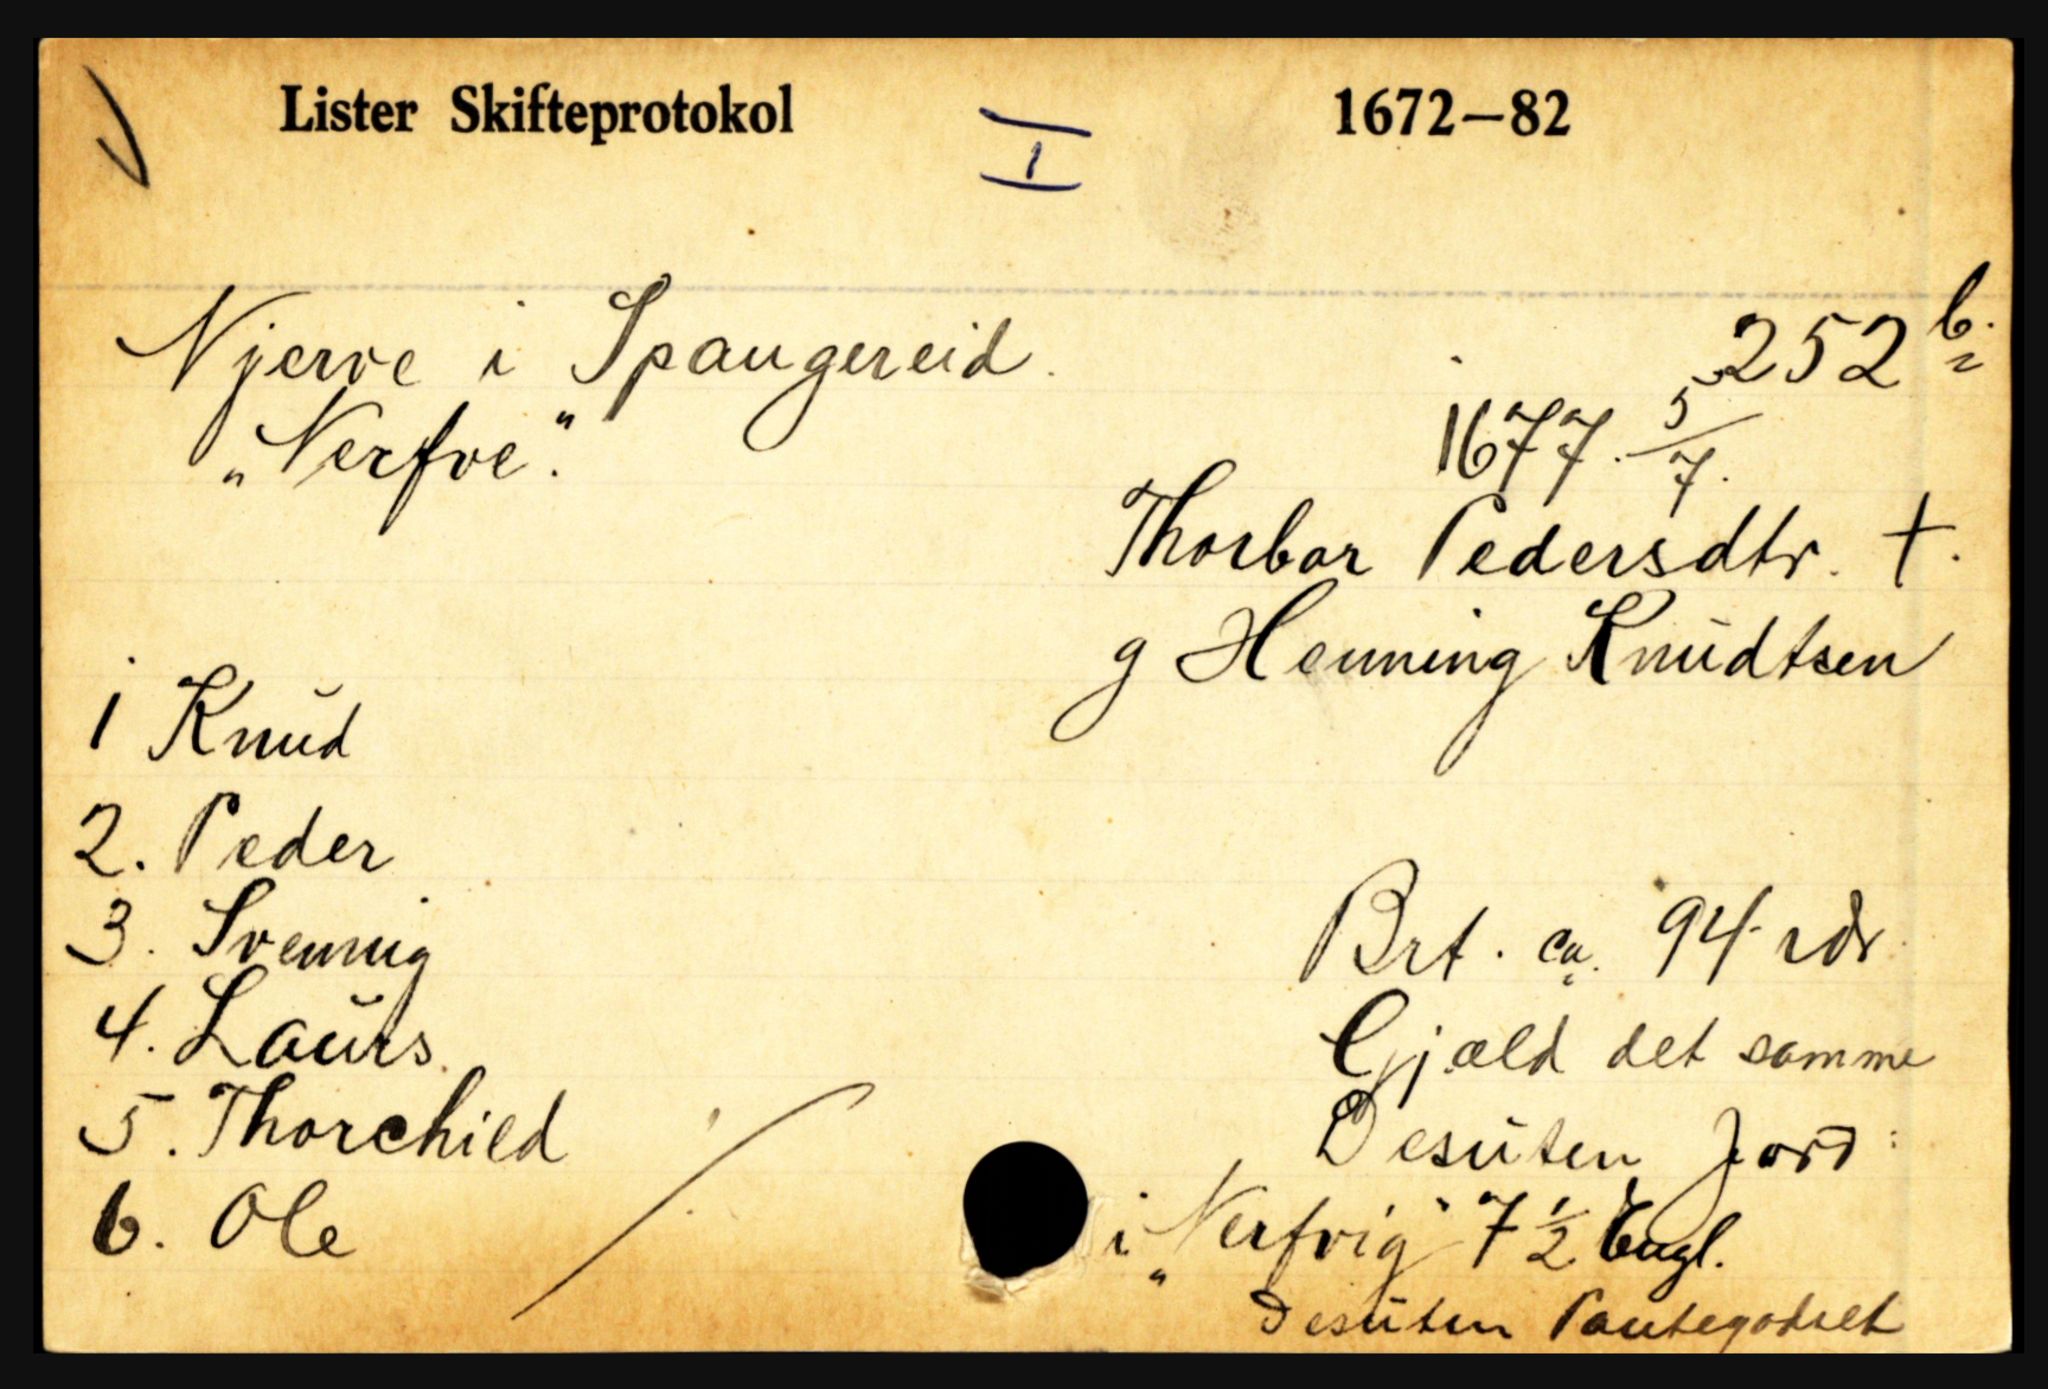 Lister Skifteprotokol I 1672–82
Njerve i Spangereid.
252 b.
"Nerfve".
1677. 5/7.
Thorbor Pedersdtr. †.
g Henning Knudtsen
1 Knud
2. Peder
3. Svennig
4. Laurs.
5. Thorchild
6. Ole
Brt. ca. 94 rdr
Gjæld det samme
Desuten Jord:
i "Nerfvig" 7 1/2 Engl.
Desuten Pantegodset